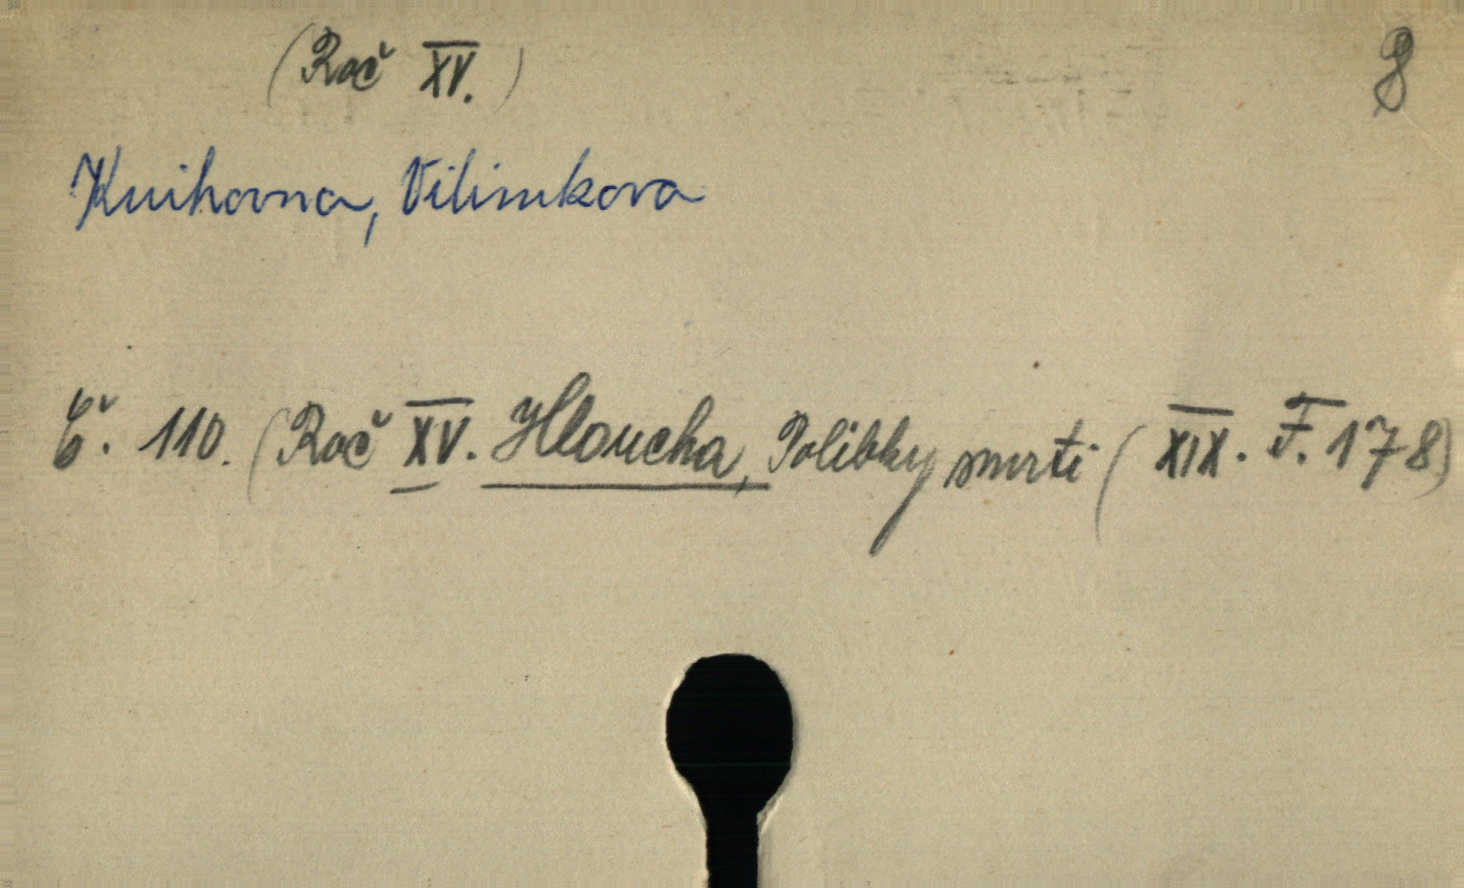 (Roč XV.) 8
Knihovna, Vilimkova
Č. 110. (Roč XV. Hloucha, Polibky smrti (XIX. F. 178)